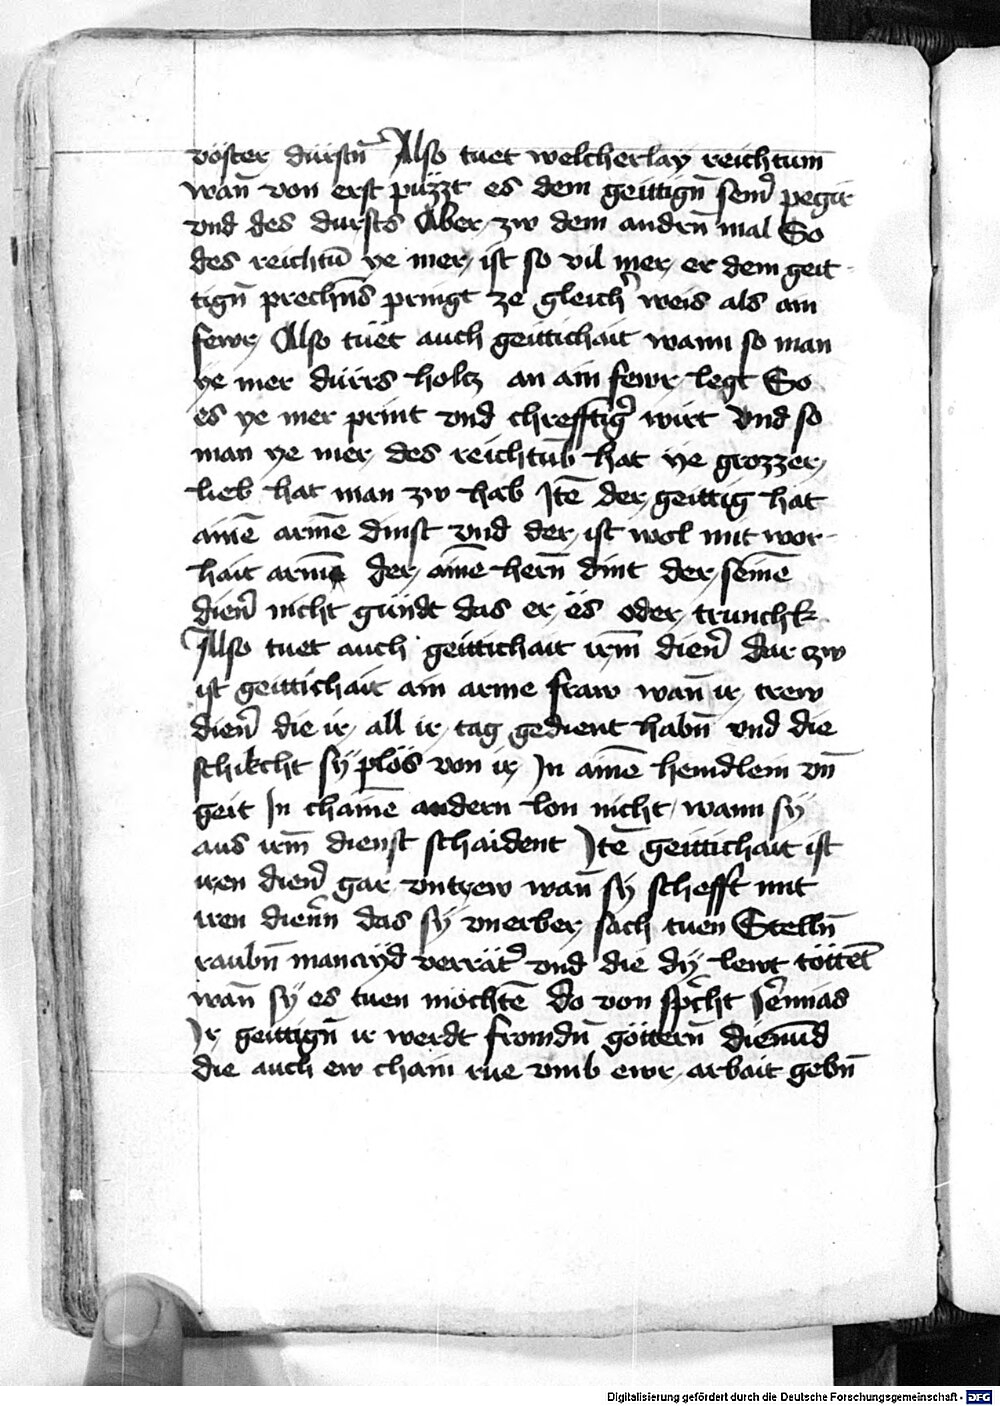 voster durstn̄ Also tuet welcherlay reichtum̄
wan̄ von erst puͤzzt es dem geittign̄ sein̄ pegir
vnd des dursts Aber zw dem andrn̄ mal So
des reichtū ye mer ist so vil mer er dem geit
tign̄ prechn̄s pringt ze gleichˀ weis als ain
fewr Also tuͤet auch geittichait wann so man
ye mer duͤrrs holcz an ain fewr legt So
es ye mer print vnd chrefftigˀ wirt Vnd so
man ye mer des reichtūb hat ye grozzer
lieb hat man zw hab Itē der geittig hat
ainē armē dinst vnd der ist wol mit wor
hait arm̄ der ainē hern̄ dint der seinē
dienˀ nicht guͤndt das er ës oder trunchk
Also tuet auch geittichait irm̄ dienˀ dar zw
ist geittichait ain arme fraw wan̄ ir trew
dienˀ die ir all ir tag gedient habn̄ vnd die
schikcht sÿ ploͤs von ir In ainē hemdlein vn̄
geit In chainē andern lon nicht wann sÿ
aus irm̄ dienst schaident Itē geittichait ist
iren dienˀ gar vntrew wan̄ sÿ schefft mit
iren dienˀn das sÿ vnerber sach tuen Stelln̄
raubn̄ manayd verraͤtˀ vnd die dÿ lewt toͤttet̄
wan̄ sÿ es tuen moͤchtē Do von spˀcht Jeˀmias
Ir geittign̄ ir werdt fromdn̄ goͤttern̄ dienūd
die auch ew chain rue vmb ewr arbait gebn̄
Digitalisierung gefördert durch die Deutsche Forschungsgemeinschaft - DFG